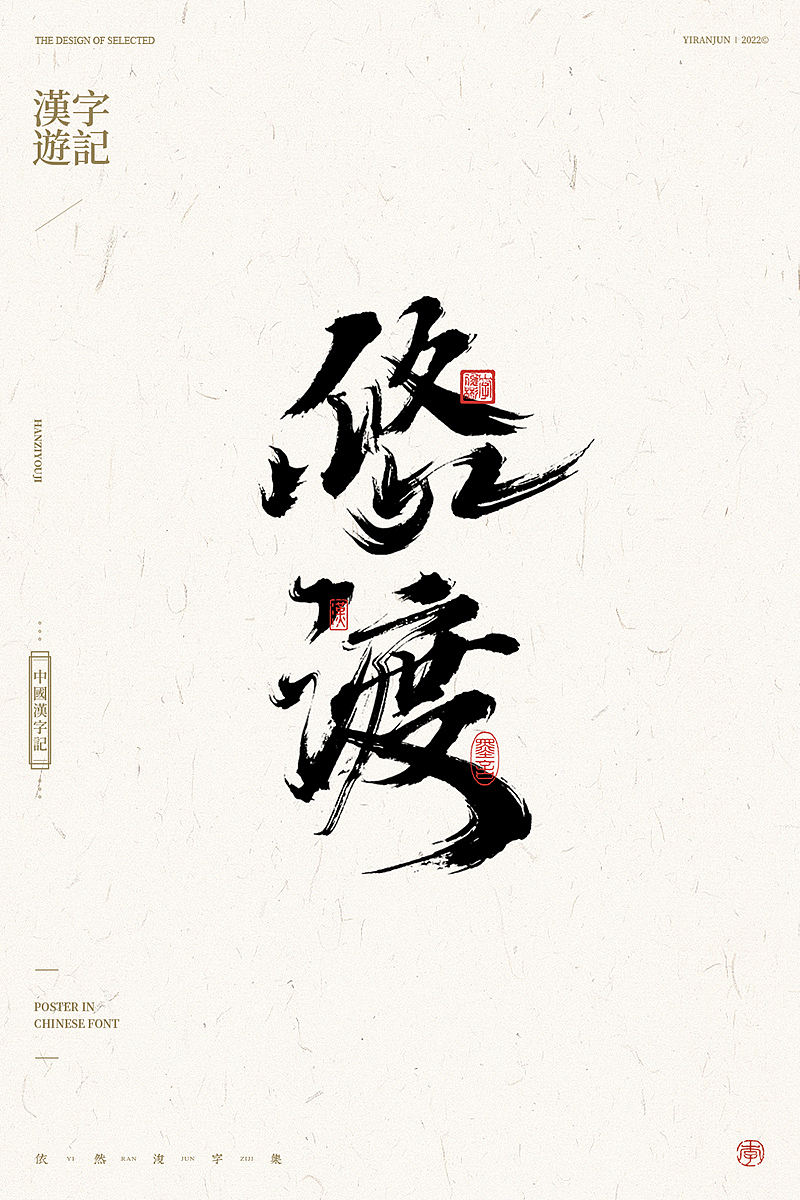 THE DESIGN OF SELECTED
YIRANJUN | 2022©
漢字
遊記
悠渡
漢
墨言
HANZIYOUJI
中國漢字記
POSTER IN
CHINESE FONT
依 YI 然 RAN 浚 JUN 字 ZIJI 集
李